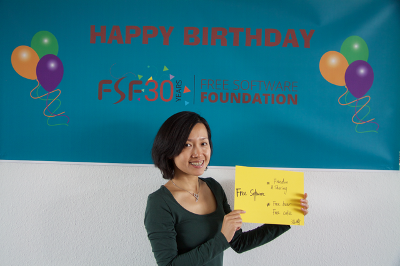 HAPPY BIRTHDAY
FSF30 YEARS
FREE SOFTWARE
FOUNDATION
Free Software
Freedom
& Sharing
Free
Free